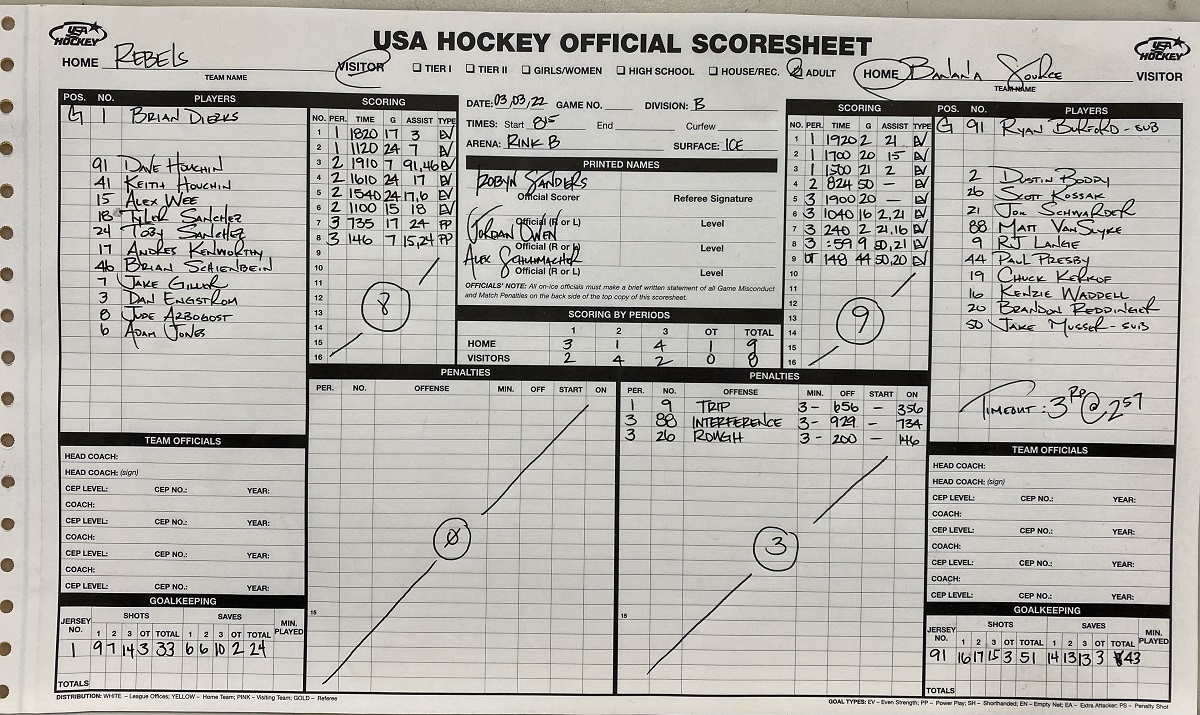 USA HOCKEY
USA HOCKEY OFFICIAL SCORESHEET
USA HOCKEY
HOME REBELS VISITOR
TEAM NAME
TIER I TIER II GIRLS/WOMEN HIGH SCHOOL HOUSE/REC. ADULT
HOME BANANA SOURCE VISITOR
TEAM NAME
POS. NO. PLAYERS
G 1 BRIAN DIERKS
91 DAVE HOUCHIN
41 KEITH HOUCHIN
15 ALEX WEE
18 TYLER SANCHEZ
24 TOBY SANCHEZ
17 ANDRES KENWORTHY
46 BRIAN SCHIENBEIN
7 JAKE GILLER
3 DAN ENGSTROM
8 JUDE ARBOGOST
6 ADAM JONES
SCORING
NO. PER. TIME G ASSIST TYPE
1 1 1820 17 3 EV
2 1 1120 24 7 EV
3 2 1910 7 91,46 EV
4 2 1610 24 17 EV
5 2 1540 24 17,6 EV
6 2 1100 15 18 EV
7 3 735 17 24 PP
8 3 146 7 15,24 PP
9
10
11
12
13
14
15
16
8
DATE: 03/03/22 GAME NO. DIVISION: B
TIMES: Start 815 End Curfew
ARENA: RINK B SURFACE: ICE
PRINTED NAMES
ROBYN SANDERS
Official Scorer Referee Signature
JORDAN OWEN
Official (R or L) Level
ALEX SCHUMACHER
Official (R or L) Level
Official (R or L) Level
OFFICIALS' NOTE: All on-ice officials must make a brief written statement of all Game Misconduct
and Match Penalties on the back side of the top copy of this scoresheet.
SCORING BY PERIODS
1 2 3 OT TOTAL
HOME 3 1 4 1 9
VISITORS 2 4 2 0 8
SCORING
NO. PER. TIME G ASSIST TYPE
1 1 1920 2 21 EV
2 1 1700 20 15 EV
3 1 1500 21 2 EV
4 2 824 50 – EV
5 3 1900 20 – EV
6 3 1040 16 2,21 EV
7 3 240 2 21,16 EV
8 3 :59 9 50,21 EV
9 OT 148 44 50,20 EV
10
11
12
13
14
15
16
9
POS. NO. PLAYERS
G 91 RYAN BURFORD - SUB
2 DUSTIN BODDY
26 SCOTT KOSSAK
21 JON SCHWARDER
88 MATT VANSLYKE
9 RJ LANGE
44 PAUL PRESBY
19 CHUCK KERKOF
16 KENZIE WADDELL
20 BRANDON REDDINGER
50 JAKE MUSSER - SUB
TIMEOUT: 3RD @ 257
PENALTIES
PER. NO. OFFENSE MIN. OFF START ON
0
15
PENALTIES
PER. NO. OFFENSE MIN. OFF START ON
1 9 TRIP 3- 656 – 356
3 88 INTERFERENCE 3- 929 – 734
3 26 ROUGH 3- 200 – 146
3
15
TEAM OFFICIALS
HEAD COACH:
HEAD COACH: (sign)
CEP LEVEL: CEP NO.: YEAR:
COACH:
CEP LEVEL: CEP NO.: YEAR:
COACH:
CEP LEVEL: CEP NO.: YEAR:
COACH:
CEP LEVEL: CEP NO.: YEAR:
GOALKEEPING
JERSEY NO. SHOTS SAVES MIN. PLAYED
1 2 3 OT TOTAL 1 2 3 OT TOTAL
1 9 7 14 3 33 6 6 10 2 24
TOTALS
TEAM OFFICIALS
HEAD COACH:
HEAD COACH: (sign)
CEP LEVEL: CEP NO.: YEAR:
COACH:
CEP LEVEL: CEP NO.: YEAR:
COACH:
CEP LEVEL: CEP NO.: YEAR:
COACH:
CEP LEVEL: CEP NO.: YEAR:
GOALKEEPING
JERSEY NO. SHOTS SAVES MIN. PLAYED
1 2 3 OT TOTAL 1 2 3 OT TOTAL
91 16 17 15 3 51 14 13 13 3 43
TOTALS
DISTRIBUTION: WHITE – League Offices; YELLOW – Home Team; PINK – Visiting Team; GOLD – Referee
GOAL TYPES: EV – Even Strength; PP – Power Play; SH – Shorthanded; EN – Empty Net; EA – Extra Attacker; PS – Penalty Shot